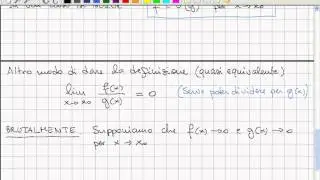 f = o(g) per x→x₀
Altro modo di dare la definizione (quasi equivalente)
lim x→x₀ f(x)/g(x) = 0 (Serve poter dividere per g(x))
BRUTALMENTE Supponiamo che f(x)→0 e g(x)→0
per x→x₀